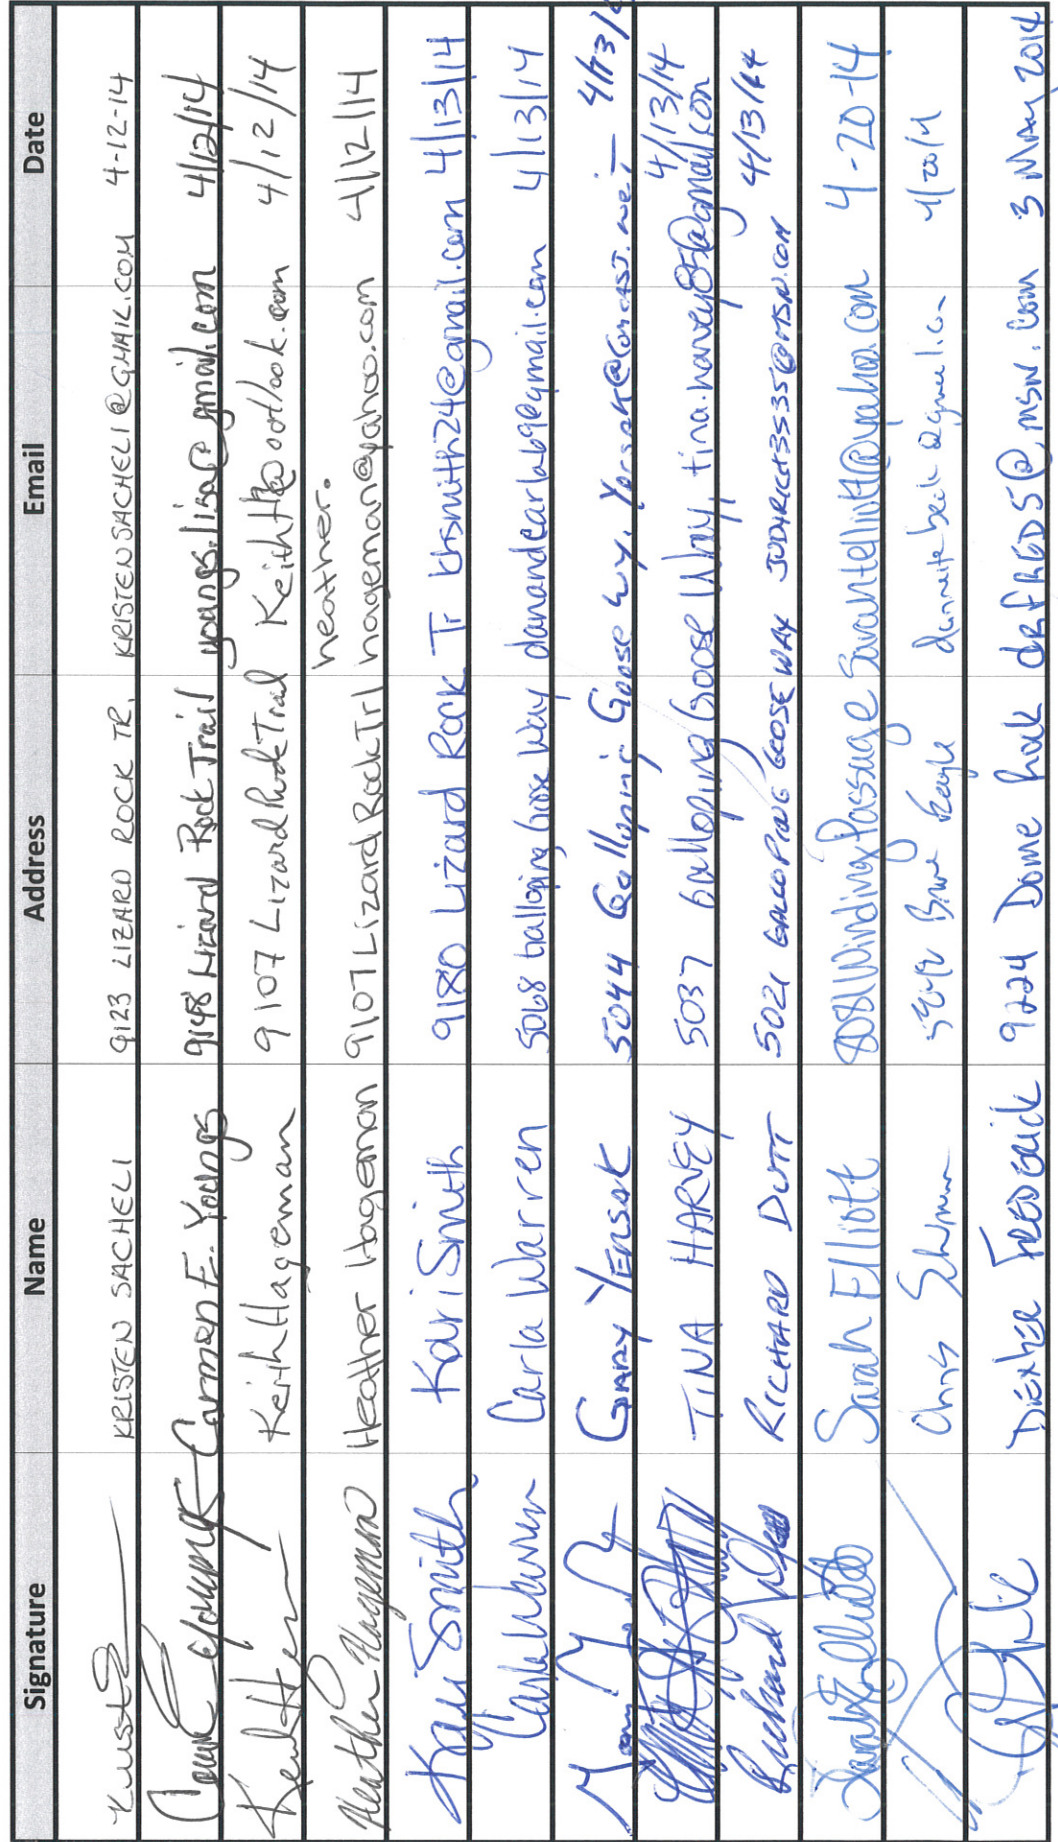 Signature Name Address Email Date
KRISTEN SACHELI 9123 LIZARD ROCK TR. KRISTENSACHELI@GMAIL.COM 4-12-14
Carmen E. Youngs 9148 Lizard Rock Trail youngs.lisa@gmail.com 4/12/14
Keith Hageman 9107 Lizard Rock Trail KeithH@outlook.com 4/12/14
heather.
Heather Hageman Heather Hageman 9107 Lizard Rock Trl hageman@yahoo.com 4/12/14
Kari Smith Kari Smith 9180 Lizard Rock Tr kbsmith24@gmail.com 4/13/14
Carla Warren Carla Warren 5068 Galloping Goose Way danandcarla69@gmail.com 4/13/14
GARY YENSAK 5044 Galloping Goose Wy, Yensak@Comcast.net 4/13/
TINA HARVEY 5037 Galloping Goose Way, tina.harvey85@gmail.com 4/13/14
Richard RICHARD DUTT 5021 GALLOPING GOOSE WAY JUDYRICH3535@MSN.COM 4/13/14
Sarah Elliott Sarah Elliott 8081 Winding Passage Sarahtelliott@yahoo.com 4-20-14
Chris 4/20/14
9224 Dome Rock drfred5@msn.com 3 May 2014